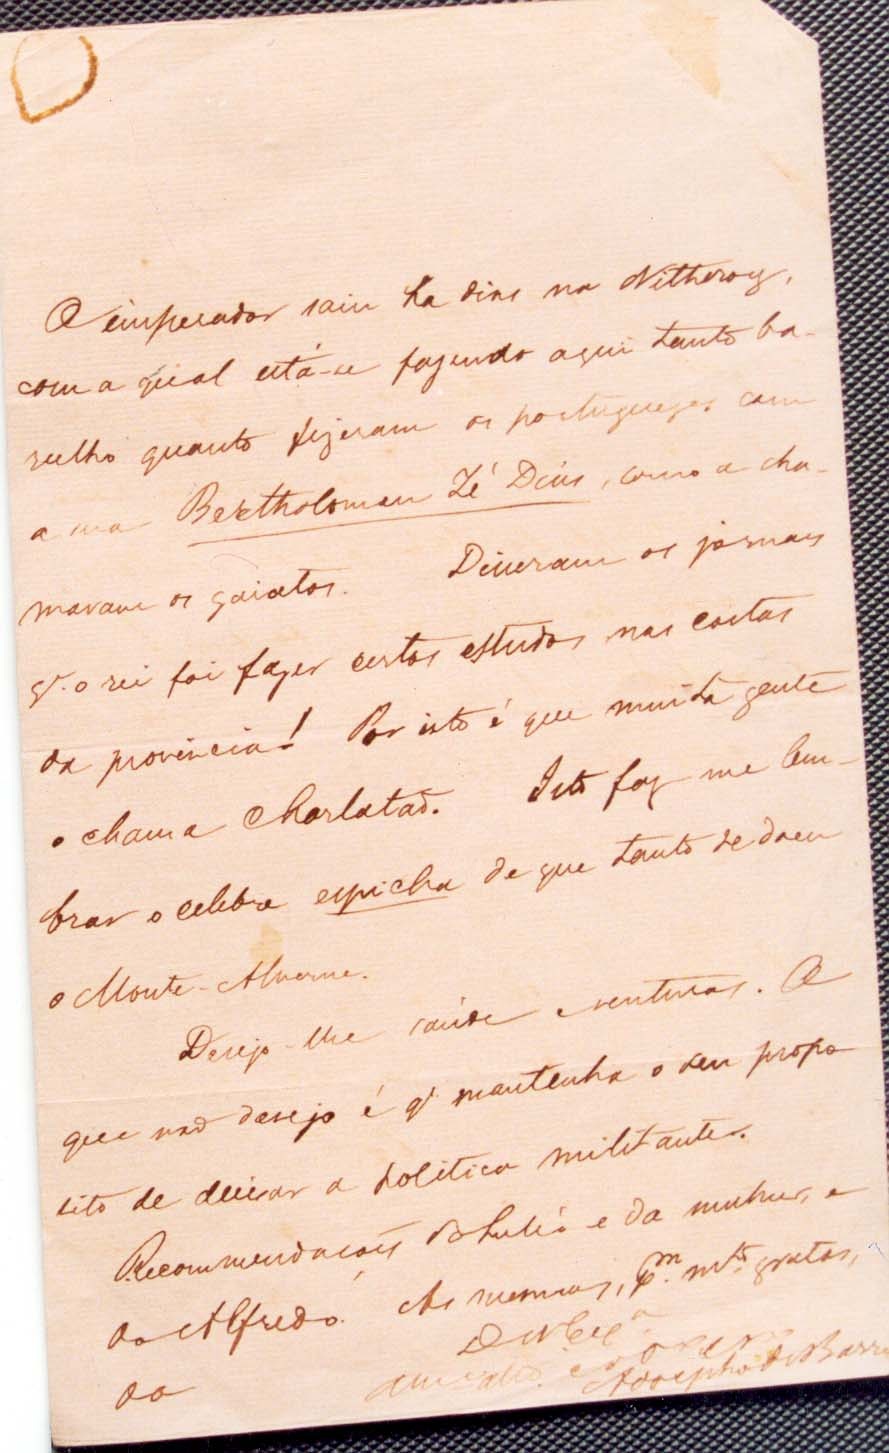 O imperador saiu ha dias na Nitheroy,
com a qual está-se fazendo aqui tanto ba-
rulho quanto fizeram os portuguezes com
a sua Bertholomeu Zé Dias, como a cha-
mavam os gaiatos. Disseram os jornaes
q'. o rei foi fazer certos estudos nas costas
da provincia! Por isto é que muita gente
o chama Charlatão. Isto faz me lem-
brar o celebre espicha de que tanto se doeu
o Monte-Alverne.
Desejo-lhe saúde e venturas. O
que não desejo é q' mantenha o seu propo
sito de deixar a politica militante.
Recommendações do Julió e da mulher, e
do Alfredo. As mesmas, p.m m.to gratas,
do
De V Ex.a
Adolpho de Barros